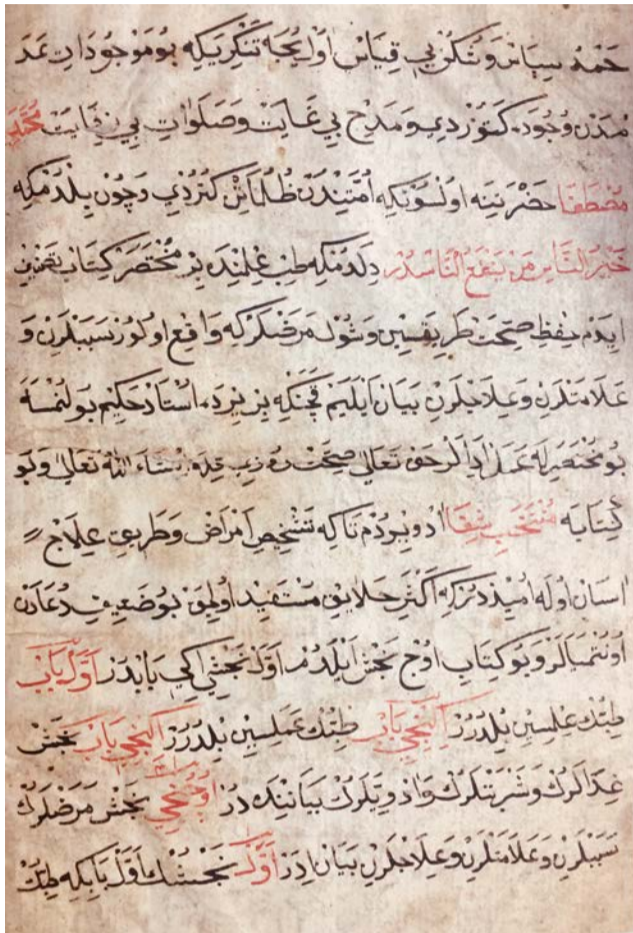 حَمْد سِپَاس وَشُكُرْ بِي قِيَاسْ اُوْل يُجَه تَنْكْرِيَكِه بُو مَوْجُودَاتِ عَدَ
مْدَنْ وُجُودَه كَتُوْرْدِي وَمَدْحِ بِي غَايَتْ وَصَلَوَاتِ بِي نِهَايَتْ مُحَمَّدِ
مُصْطَفَا حَضْرَتِنَه اُولْسُونْكِه اُمَّتِنْدَنْ ظُلُمَاتِى كَتُرْدِي وَچُونْ بِلْدُمْكِه
خَيْرُ النَّاسِ مَنْ يَنْفَعُ النَّاسَدُرْ دِلَدُمْكِه طِبْ عِلْمِنْدَه بِرْ مُخْتَصَرْ كِتَابْ تَصْنِيفْ
اِيدَمْ حِفْظِ صِحَّتْ طَرِيقِسِينْ وَشُولْ مَرَضْلَرْ كِه وَاقِعْ اُولُورْ سَبَبْلَرِنْ وَ
عَلَامَتْلَرِنْ وَعِلَاجْلَرِنْ بَيَانْ اَيْلَيَمْ قَچَنْكِه بِرْ يِرْدَه اُسْتَادْ حَكِيمْ بُولُنْمَسَه
بُو مُخْتَصَرِلَه عَمَلْ اِدَه لَرْ حَقْ تَعَالَى صِحَّتْ رُوزِي قِلَه اِنْشَاءَ اللّٰهُ تَعَالَى وَبُو
كِتَابَه مُنْتَخَبِ شِفَا اَدْ وِيرْدُمْ تَاكِه تَشْخِيصِ اَمْرَاضْ وَطَرِيقِ عِلَاجْ
اَسَانْ اُولَه اُمِيذْدُرْكِه اَكْثَرِ خَلَايِقْ مُسْتَفِيدْ اُولِيقْ بُو ضَعِيفِ دُعَادَنْ
اُونُتْمَيَالَرْ وَبُو كِتَابِ اُوچْ بَخْشْ اَيْلَدُمْ اَوَّلْ بَخْشِ اِكِي بَابْدَرْ اَوَّلْ بَابْ
طِبُّكْ عِلْمِسِينْ بِلْدُرُرْ اِكِنْجِي بَابْ طِبُّكْ عَمَلِسِينْ بِلْدُرُرْ اِكِنْجِي بَابْ بَخْشْ
غِدَالَرُكْ وَشَرْبَتْلَرُكْ وَاَدْوِيَلَرُكْ بَيَانِنْدَه دُرْ اُوچُنْجِي بَخْشْ مَرَضْلَرُكْ
سَبَبْلَرِنْ وَعَلَامَتْلَرِنْ وَعِلَاجْلَرِنْ بَيَانْ اِدَرْ اَوَّلْ بَخْشُكْ اَوَّلْ بَابِكِه طِبُّكْ